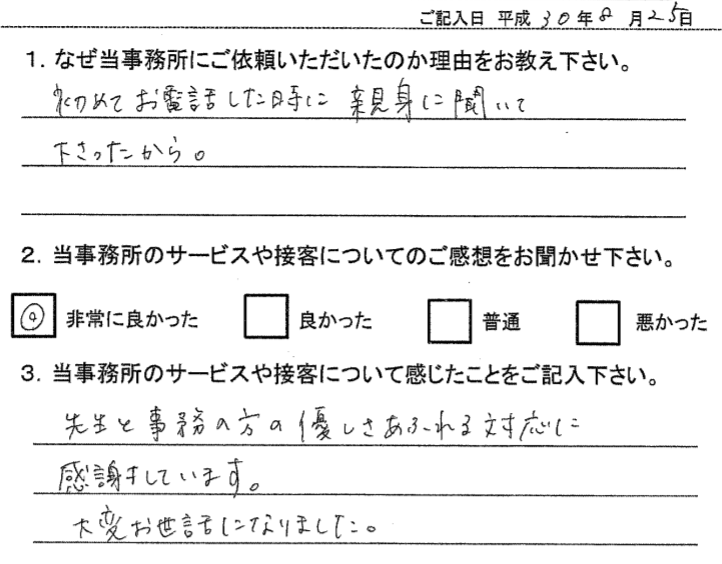 ご記入日 平成 30年 8月25日
1. なぜ当事務所にご依頼いただいたのか理由をお教え下さい。
初めてお電話した時に 親身に聞いて
下さったから。
2. 当事務所のサービスや接客についてのご感想をお聞かせ下さい。
◎ 非常に良かった □ 良かった □ 普通 □ 悪かった
3. 当事務所のサービスや接客について感じたことをご記入下さい。
先生と事務の方の優しさあふれる対応に
感謝しています。
大変お世話になりました。